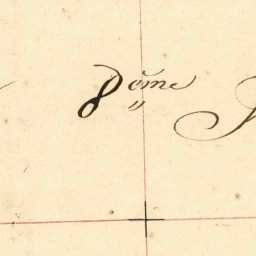 8ème